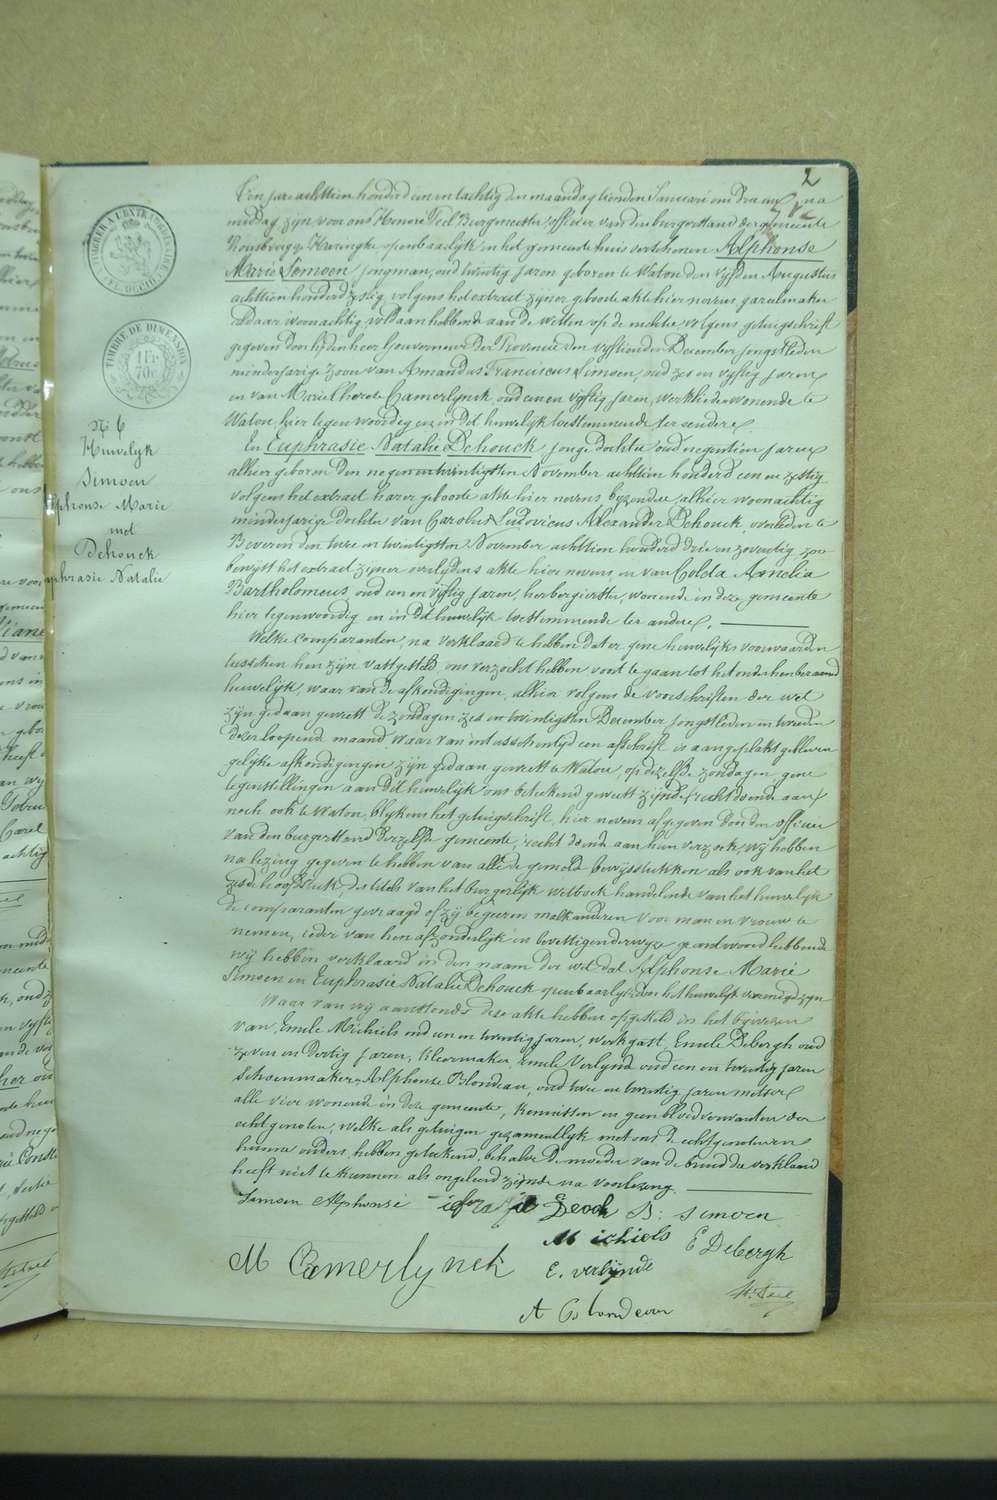 2
TIMBRE DE DIMENSION
1 FR
70c
N: 6
Huwelyk
Simoen
Alphonse Marie
met
Dehouck
Euphrasie Natalie
Ten jare achttien honderd een en tachtig den maandag tienden Januari om dry uren na
middag zijn voor ons Henori Teel Burgmeester officier van den burgerstand der gemeente
Rousbrugge Haringhe openbaarlyk in het gemeentehuis verschenen Alphonse
Marie Simoen jongman, oud twintig jaren geboren te Watou den vyfden Augustus
achttien honderd zestig, volgens het extract zijner geboorte akte hier nevens gevoegd
aldaar woonachtig voldaan hebbende aan de wetten op de militie volgens getuigschrift
gegeven door den heer Gouverneur der Provincie den vyftienden December jongstleden
minderjarige zoon van Amandus Franciscus Simoen, oud zes en vyftig jaren
en van Marie Camerlynck, oud een en vyftig jaren, werklieden wonende te
Watou, hier tegenwoordig en in dit huwelijk toestemmende ter eendere
En Euphrasie Natalie Dehouck jonge dochter oud negentien jaren
alhier geboren den negen en twintigsten November achttien honderd een en zestig
volgens het extract harer geboorte akte hier nevens byzondere, alhier woonachtig
minderjarige dochter van Carolus Ludovicus Alexander Dehouck, overleden te
Beveren den twee en twintigsten November achttien honderd drie en zeventig, zoo
bewyst het extract zijner overlydens akte hier nevens, en van Colda Amelia
Bartholomeus oud een en vyftig jaren, herbergierster, wonende in deze gemeente
hier tegenwoordig en in dit huwelijk toestemmende ter andere.
Welke comparanten, na verklaard te hebben dat er geene huwelijks voorwaarden
tusschen hen zijn vastgesteld ons verzocht hebben voort te gaan tot het onder hen beraamd
huwelijk, waar van de afkondigingen, alhier volgens de voorschriften der wet
zijn gedaan geweest de zondagen zes en twintigsten December jongstleden en tweeden
dezer loopende maand, waar van intusschentyd een afschrift is aangeplakt gebleven
gelijke afkondigingen zijn gedaan geweest te Watou, op dezelfde zondagen, geene
tegenstellingen aan dit huwelijk ons bekend geweest zijnde, recht doende aan
noch ook te Watou, blykens het getuigschrift, hier nevens afgegeven door den officier
van den burgerstand derzelfde gemeente, recht doende aan hun verzoek, wy hebben
na lezing gegeven te hebben van alle de gemelde bewysstukken als ook van het
zesde hoofdstuk des titels van het burgerlijk wetboek handelende van het huwelijk
de comparanten gevraagd of zij begeeren malkanderen voor man en vrouw te
nemen, ieder van hen afzonderlijk en bevestigenderwyze geandwoord hebbende
wij hebben verklaard in den naam der wet dat Alphonse Marie
Simoen en Euphrasie Natalie Dehouck openbaarlyk door het huwelijk vereenigd zyn
Waar van wij aanstonds deze akte hebben opgesteld in het bywezen
van Emile Michiels oud een en twintig jaren, werkgast, Emile Debergh oud
zeven en dertig jaren, kleermaker, Emile Verlynde oud een en twintig jaren
schoenmaker, Alphonse Blondeau, oud twee en twintig jaren metser
alle vier wonende in deze gemeente, kennissen en geen bloedverwanten der
echtgenoten, welke als getuigen gezamentlijk met ons de echtgenoten en
hunne ouders hebben geteekend, behalve de moeder van de bruid die verklaard
heeft niet te kunnen als ongeleerd zijnde na voorlezing.
Simoen Alphonse Deook B: Simoen
Michiels E Debergh
M Camerlynck E. verlynde
H. Teel
A Blondeau